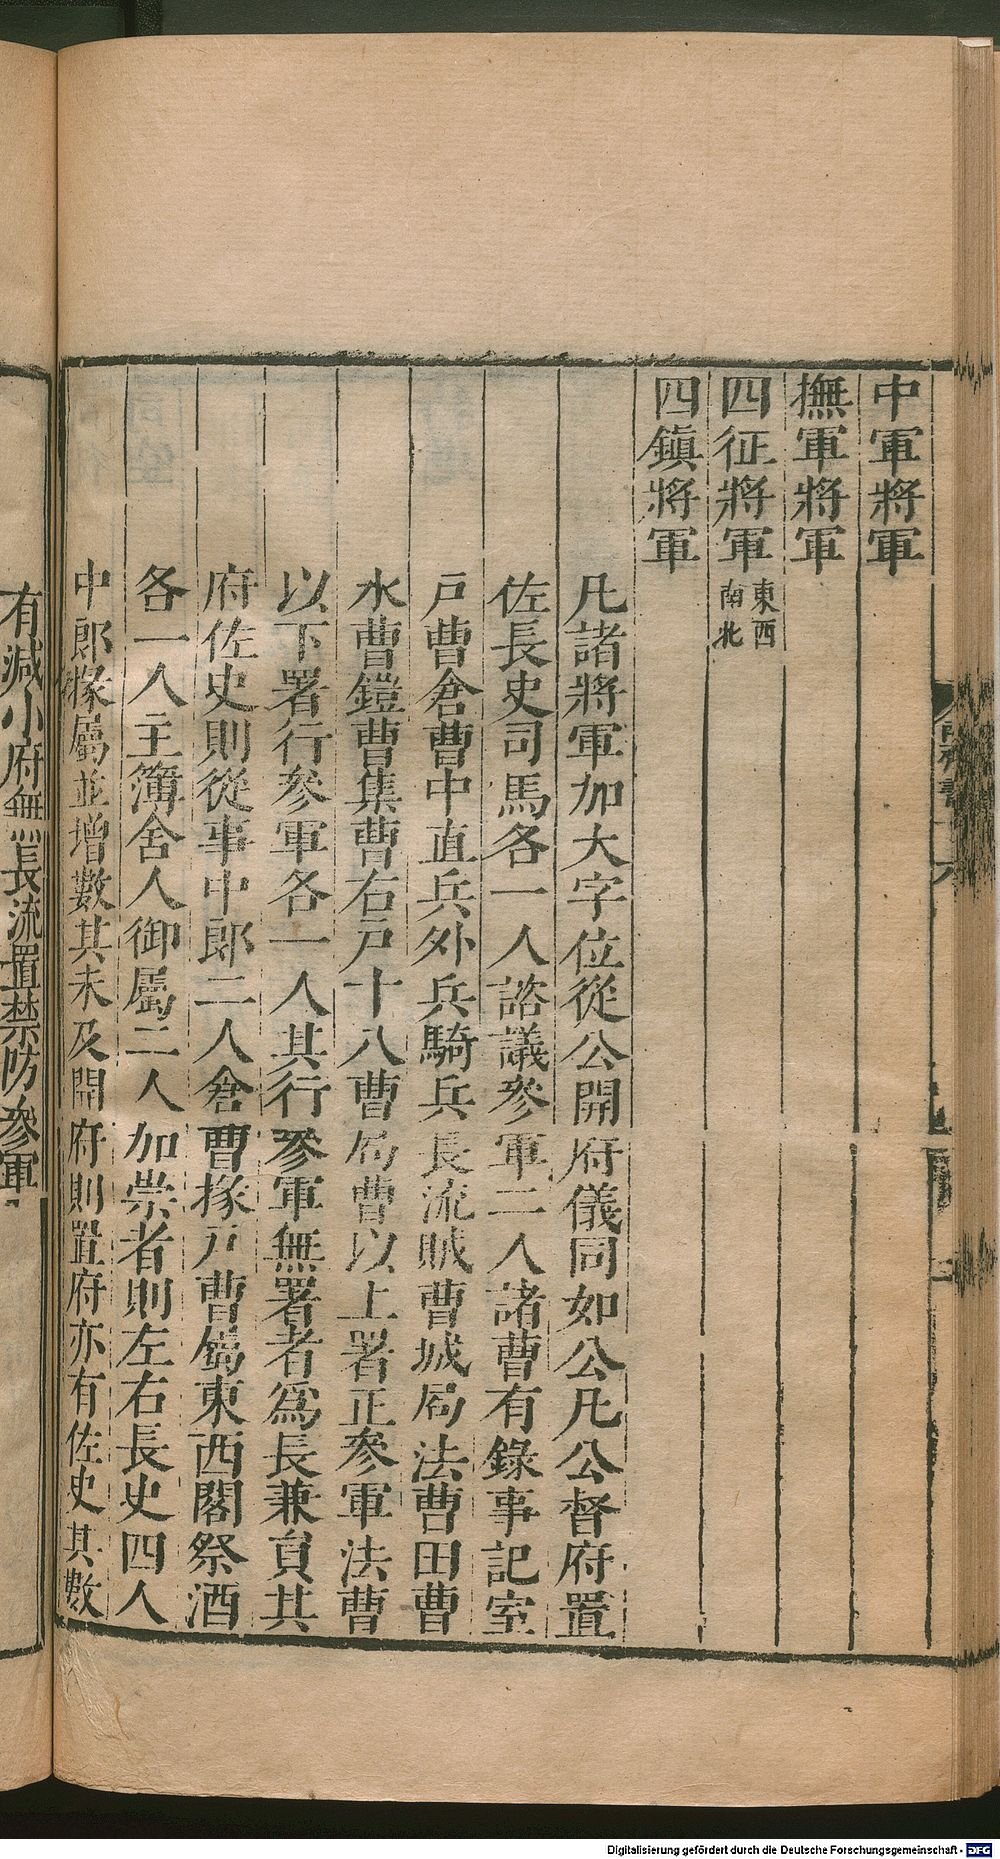 中軍將軍
撫軍將軍
四征將軍東西南北
四鎮將軍
凡諸將軍加大字位從公開府儀同如公凡公督府置
佐長史司馬各一人諮議參軍二人諸曹有錄事記室
戸曹倉曹中直兵外兵騎兵長流賊曹城局法曹田曹
水曹鎧曹集曹右戸十八曹局曹以上署正參軍法曹
以下署行參軍各一人其行參軍無署者爲長兼員其
府佐史則從事中郎二人倉曹掾戸曹屬東西閣祭酒
各一人主簿舍人御屬二人加崇者則左右長史四人
中郎掾屬並增數其未及開府則置府亦有佐史其數
有減小府無長流置禁防參軍
Digitalisierung gefördert durch die Deutsche Forschungsgemeinschaft - DFG